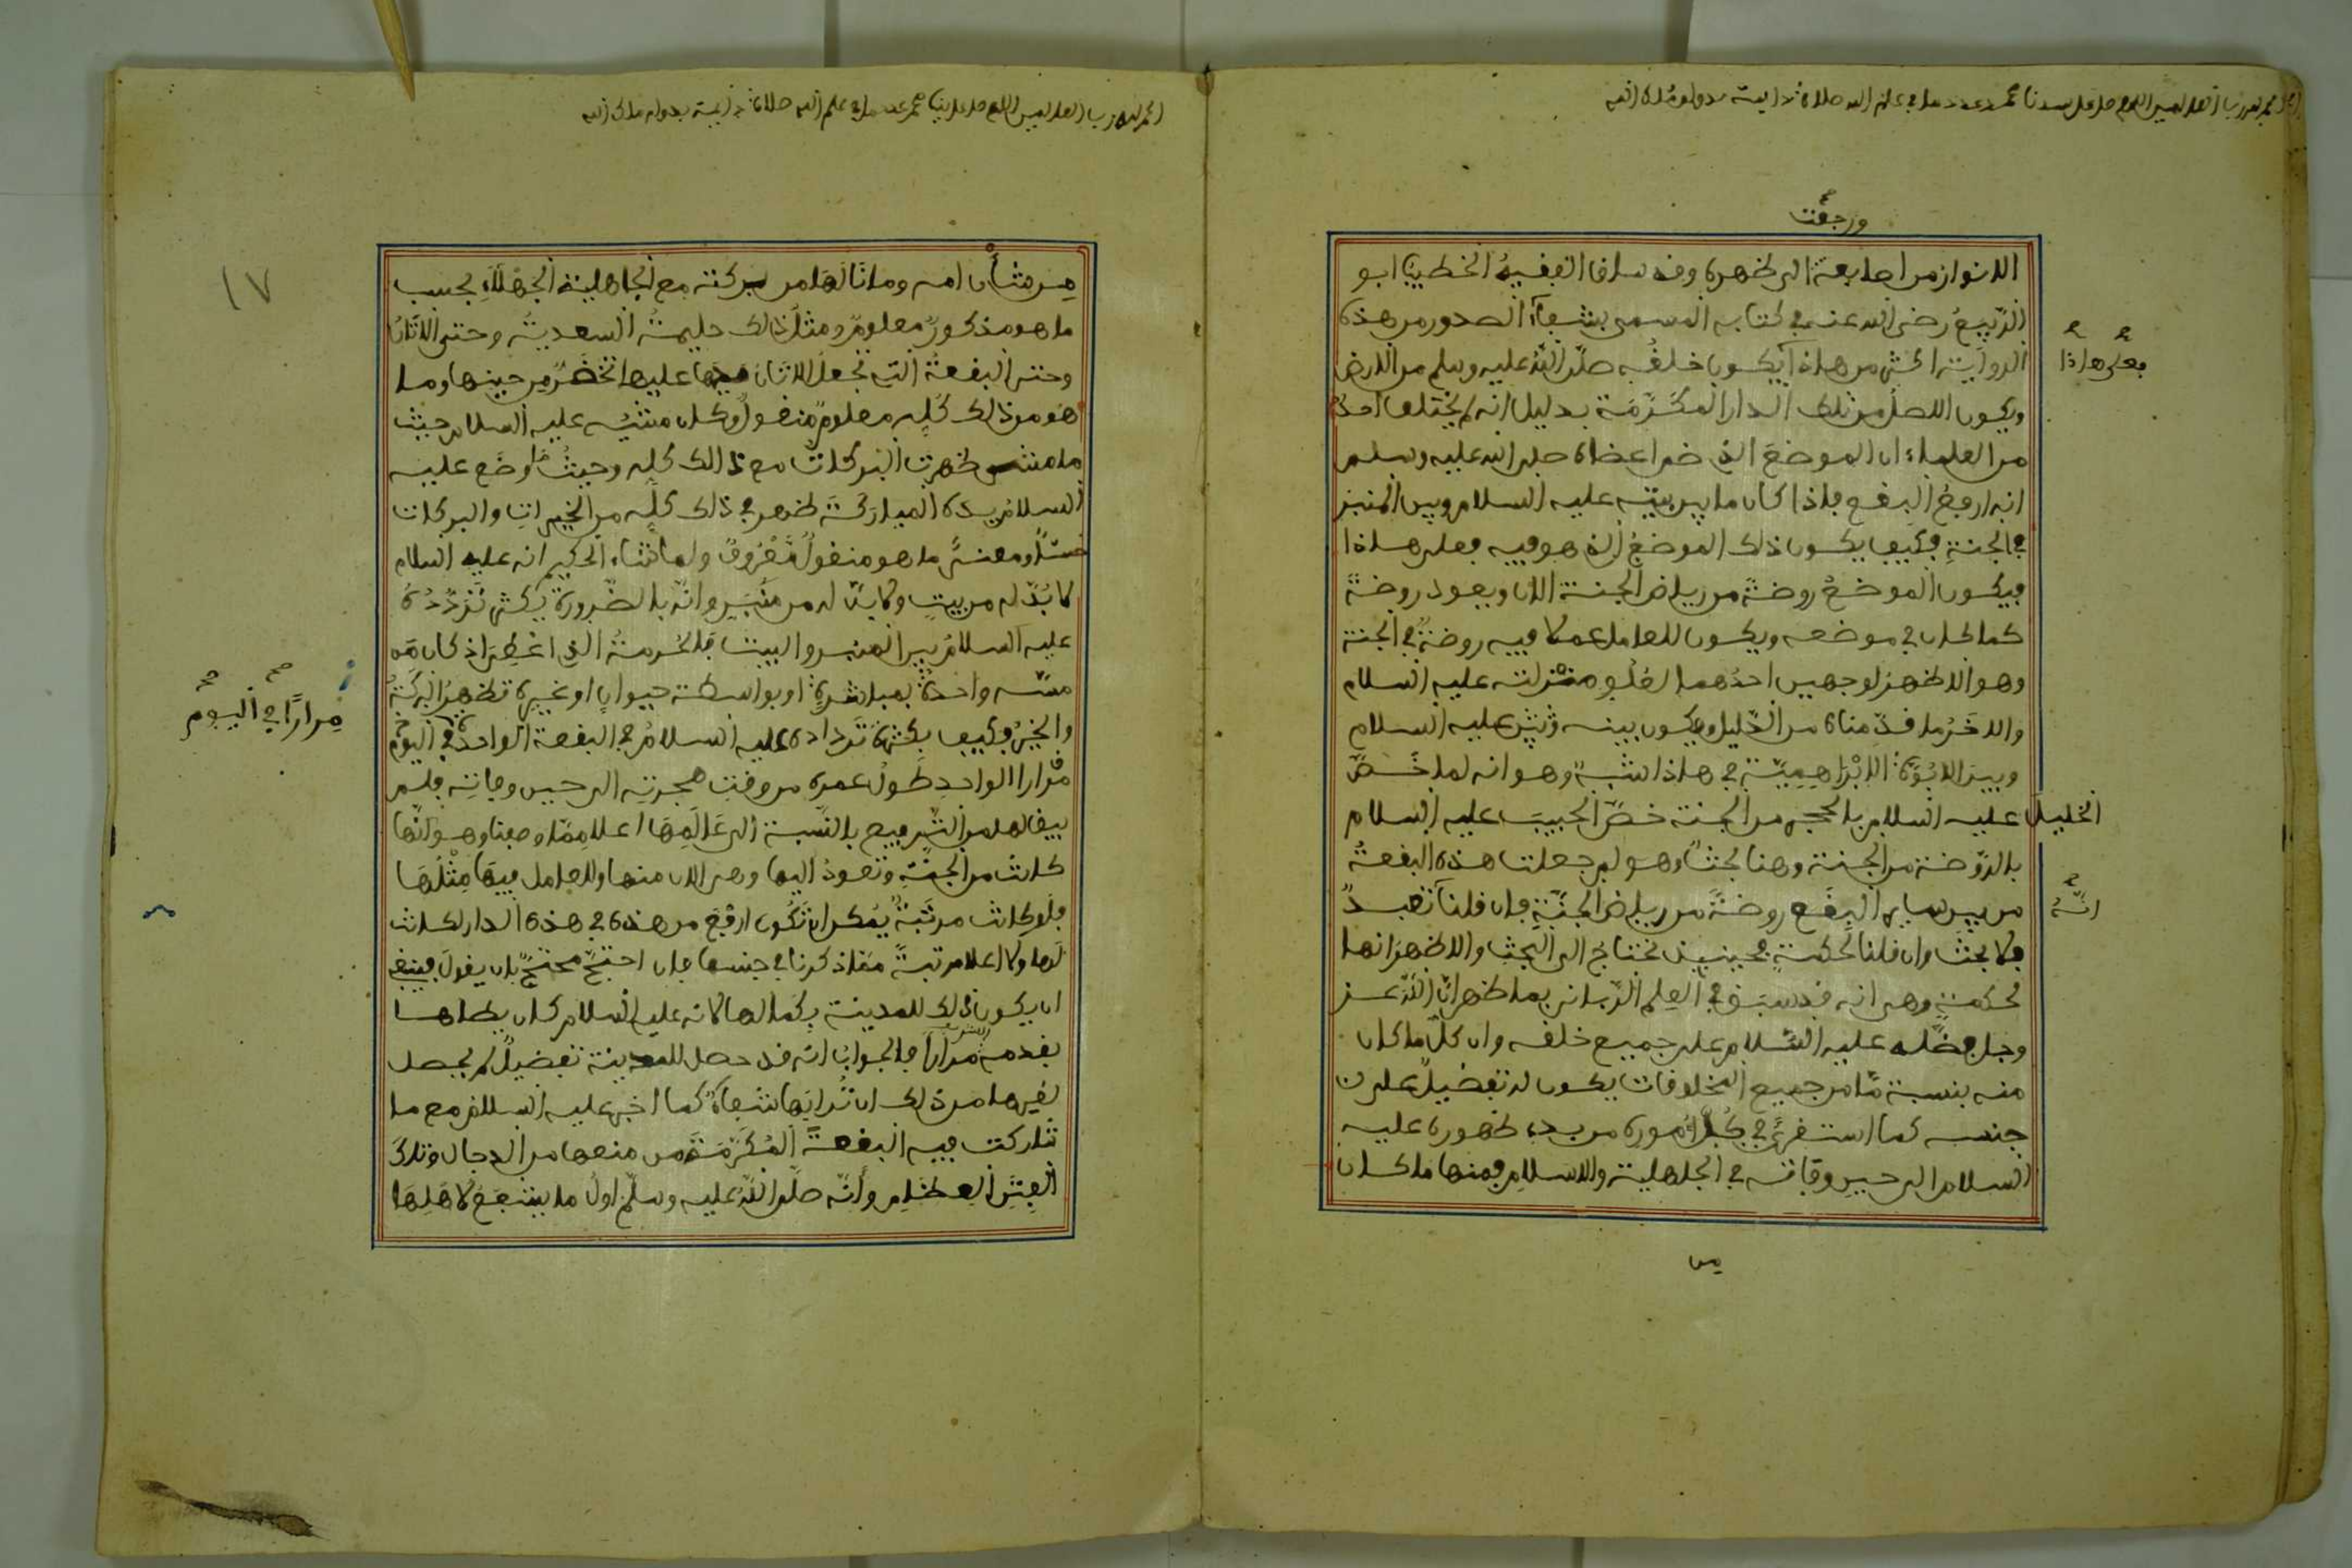 الحمد لله رب العالمين اللهم صل على سيدنا محمد عدد ما في علم الله صلاة دايمة بدوام ملك الله
ورجعت
الانوار من اصابعه الى ظهره وقد ساق الفقيه الخطيب ابو
الربيع رضي الله عنه في كتابه المسمى بشفاء الصدور من هذه
الرواية اكثر من هاذا يكون خلقه صلى الله عليه وسلم من الارض
فعلى هاذا
ويكون الاصل من تلك الدار المكرمة بدليل انه لم يختلف احد
من العلماء ان الموضع الذي ضم اعضاه صلى الله عليه وسلم
انه ارفع البقع فاذا كان ما بين بيته عليه السلام وبين المنبر
في الجنة فكيف يكون ذلك الموضع الذي هو فيه فعلى هاذا
فيكون الموضع روضة من رياض الجنة الان ويعود روضة
كما كان في موضعه ويكون للعامل عملا فيه روضة في الجنة
وهو الاظهر لوجهين احدهما لعلو منزلته عليه السلام
والاخر ما قدمناه من الدليل ويكون بينه وبين عليه السلام
وبين الابوة الابراهيمية في هاذا شبه وهو انه لما خص
الخليل عليه السلام بالحجر من الجنة خص الحبيب عليه السلام
بالروضة من الجنة وهنا بحث وهو لم جعلت هذه البقعة
من بين ساير البقع روضة من رياض الجنة فان قلنا تعبد
انه
فلا بحث وان قلنا لحكمة فحينيذ نحتاج الى البحث والاظهر انها
لحكمة وهي انه قد سبق في العلم الرباني بما ظهر ان الله عز
وجل فضله عليه السلام على جميع خلقه وان كل ما كان
منه بنسبة ما من جميع المخلوقات يكون له تفضيل على
جنسه كما استقري في كل اموره من بدء ظهوره عليه
السلام الى حين وفاته في الجاهلية والاسلام فمنها ما كان
من
الحمد لله رب العالمين اللهم صل على نبينا محمد عدد ما في علم الله صلاة دايمة بدوام ملك الله
١٧
من شأن امه وما نالها من بركته مع الجاهلية الجهلاء بحسب
ما هو مذكور معلوم ومثل ذالك حليمة السعدية وحتى الاتان
وحتى البقعة التي تجعل الاتان يدها عليها تخضر من حينها وما
هو من ذالك كله معلوم منقول وكان مشيه عليه السلام حيث
ما مشى ظهرت البركات مع ذالك كله وحيث ما وضع عليه
السلام يده المباركة ظهر في ذالك كله من الخيرات والبركات
حسا ومعنى ما هو منقول معروف ولما شاء الحكيم انه عليه السلام
لا بد له من بيت ولا بد له من منبر وانه بالضرورة يكثر تردده
عليه السلام بين المنبر والبيت فالحرمة التي اعطي اذ كان من
مسه واحدة بمباشرة او بواسطة حيوان او غيره تظهر البركة
مرارا في اليوم
والخير فكيف بكثرة ترداده عليه السلام في البقعة الواحدة في اليوم
مرارا الواحد طول عمره من وقت هجرته الى حين وفاته فلم
يبق لها من الترفيع بالنسبة الى عالمها اعلا مما وصفنا وهو انها
كانت من الجنة وتعود اليها وهي الان منها وللعامل فيها مثلها
فلو كانت مرتبة يمكن ان تكون ارفع من هذه في هذه الدار لكانت
لها ولا اعلا مرتبة مما ذكرنا في جنسها فان احتج محتج بان يقول فينبغي
ان يكون ذالك للمدينة بكمالها لانه عليه السلام كان يطاها
بقدمه مرارا فالجواب انه قد حصل للمدينة تفضيل لم يحصل
لغيرها من ذلك ان ترابها شفاء كما اخبر عليه السلام مع ما
شاركت فيه البقعة المكرمة من منعها من الدجال وتلك
الفتن العظام وانه صلى الله عليه وسلم اول ما يشفع لاهلها